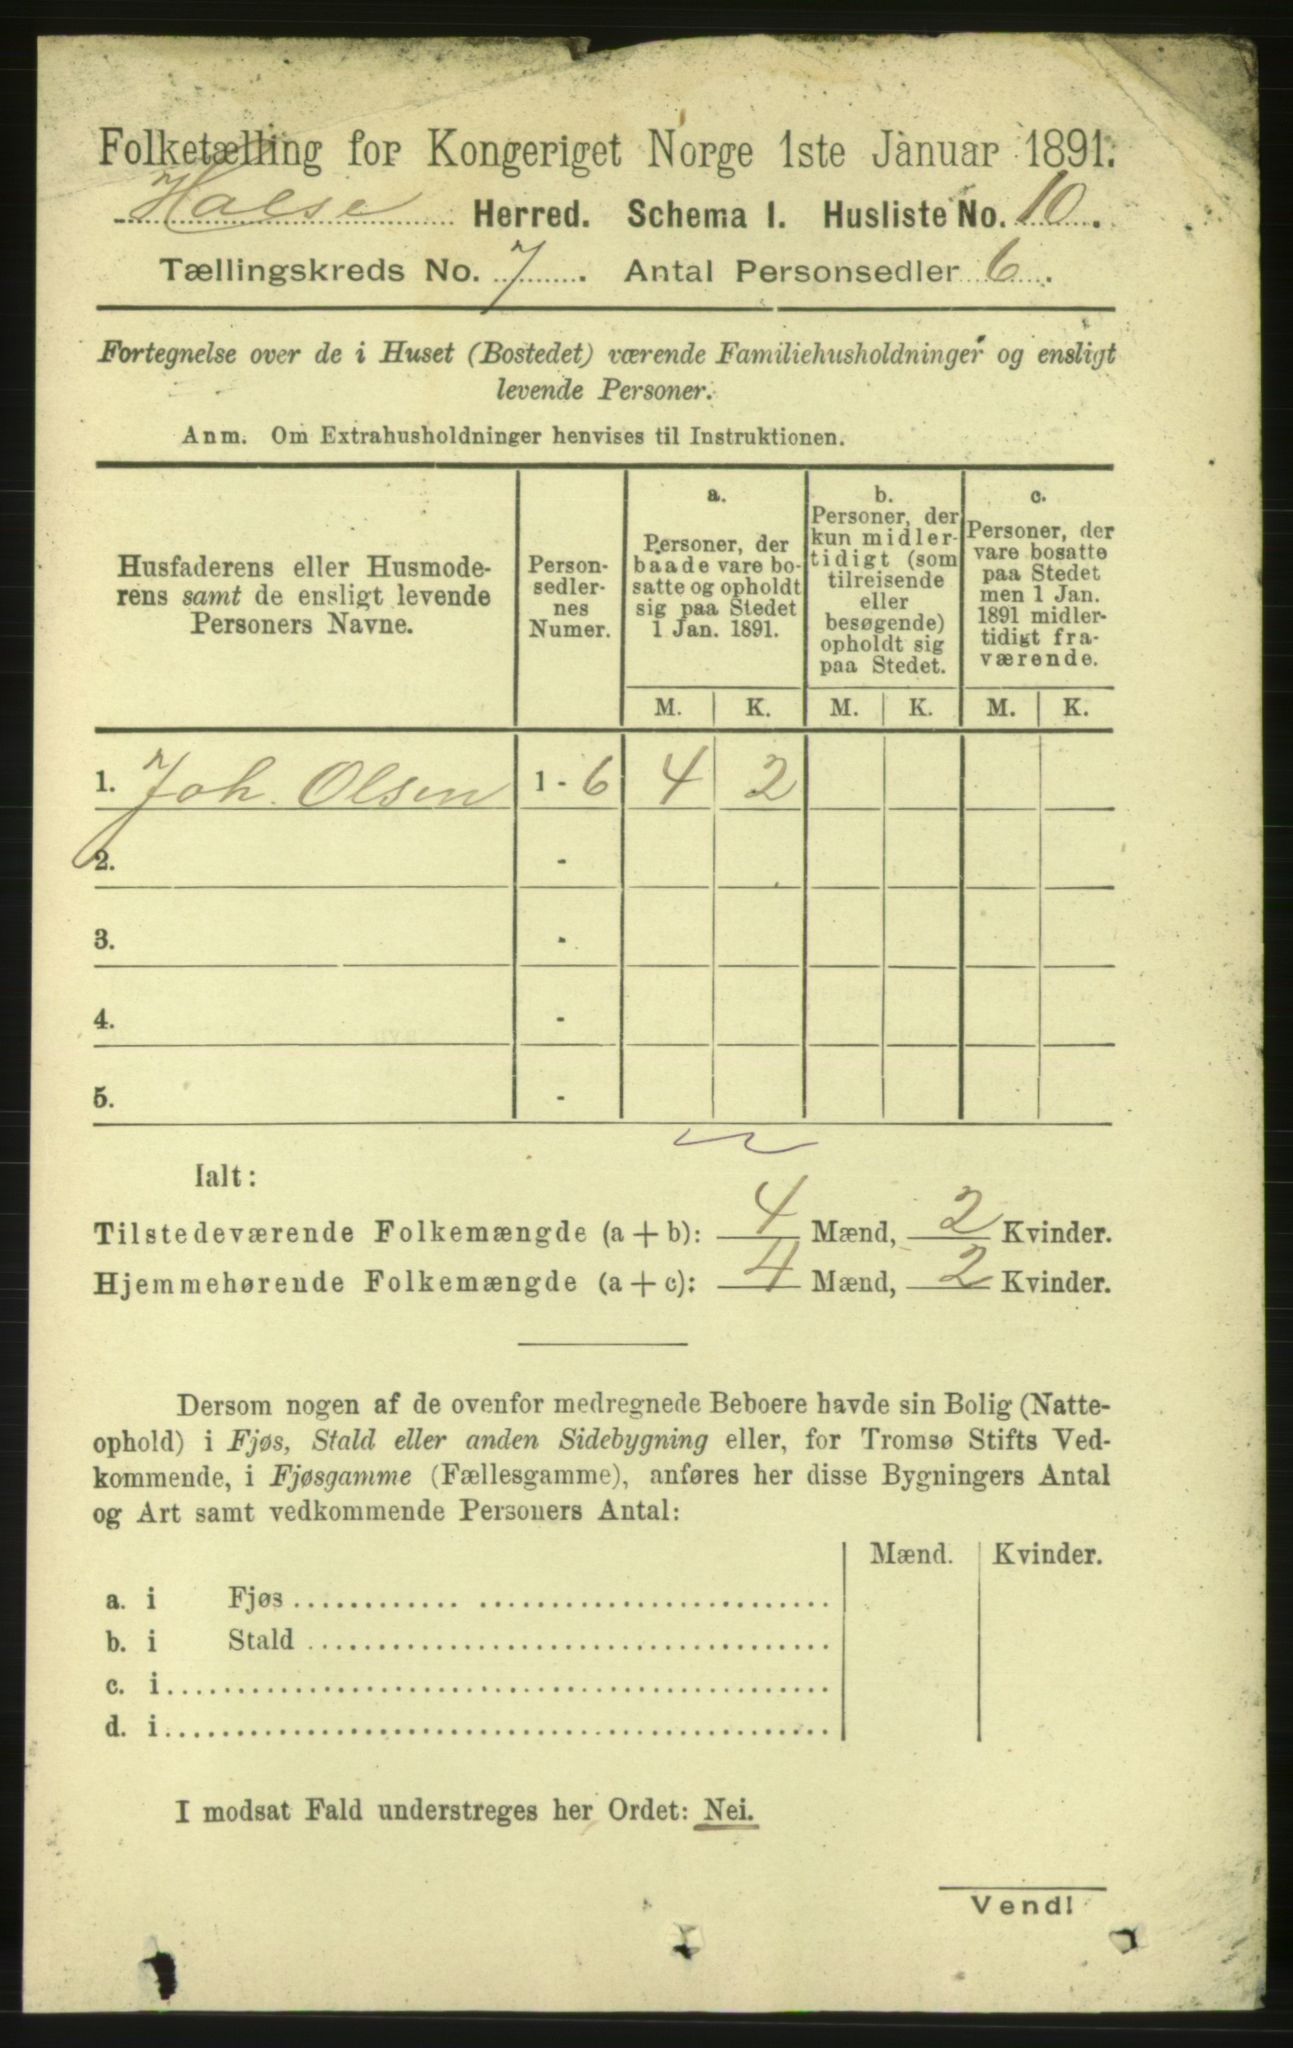 Folketælling for Kongeriget Norge 1ste Januar 1891.
Halse Herred. Schema 1. Husliste No. 10.
Tællingskreds No. 7. Antal Personsedler 6.
Fortegnelse over de i Huset (Bostedet) værende Familiehusholdninger og ensligt
levende Personer.
Anm. Om Extrahusholdninger henvises til Instruktionen.
Husfaderens eller Husmode-
rens samt de ensligt levende
Personers Navne.
Person-
sedler-
nes
Numer.
a.
Personer, der
baade vare bo-
satte og opholdt
sig paa Stedet
1 Jan. 1891.
b.
Personer, der
kun midler-
tidigt (som
tilreisende
eller
besøgende)
opholdt sig
paa Stedet.
c.
Personer, der
vare bosatte
paa Stedet
men 1 Jan.
1891 midler-
tidigt fra-
værende.
M. K. M. K. M. K.
1. Joh. Olsen 1 - 6 4 2
2. -
3. -
4. -
5. -
Ialt:
Tilstedeværende Folkemængde (a + b): 4 Mænd, 2 Kvinder.
Hjemmehørende Folkemængde (a + c): 4 Mænd, 2 Kvinder.
Dersom nogen af de ovenfor medregnede Beboere havde sin Bolig (Natte-
ophold) i Fjøs, Stald eller anden Sidebygning eller, for Tromsø Stifts Ved-
kommende, i Fjøsgamme (Fællesgamme), anføres her disse Bygningers Antal
og Art samt vedkommende Personers Antal:
Mænd. Kvinder.
a. i Fjøs
b. i Stald
c. i
d. i
I modsat Fald understreges her Ordet: Nei.
Vend!